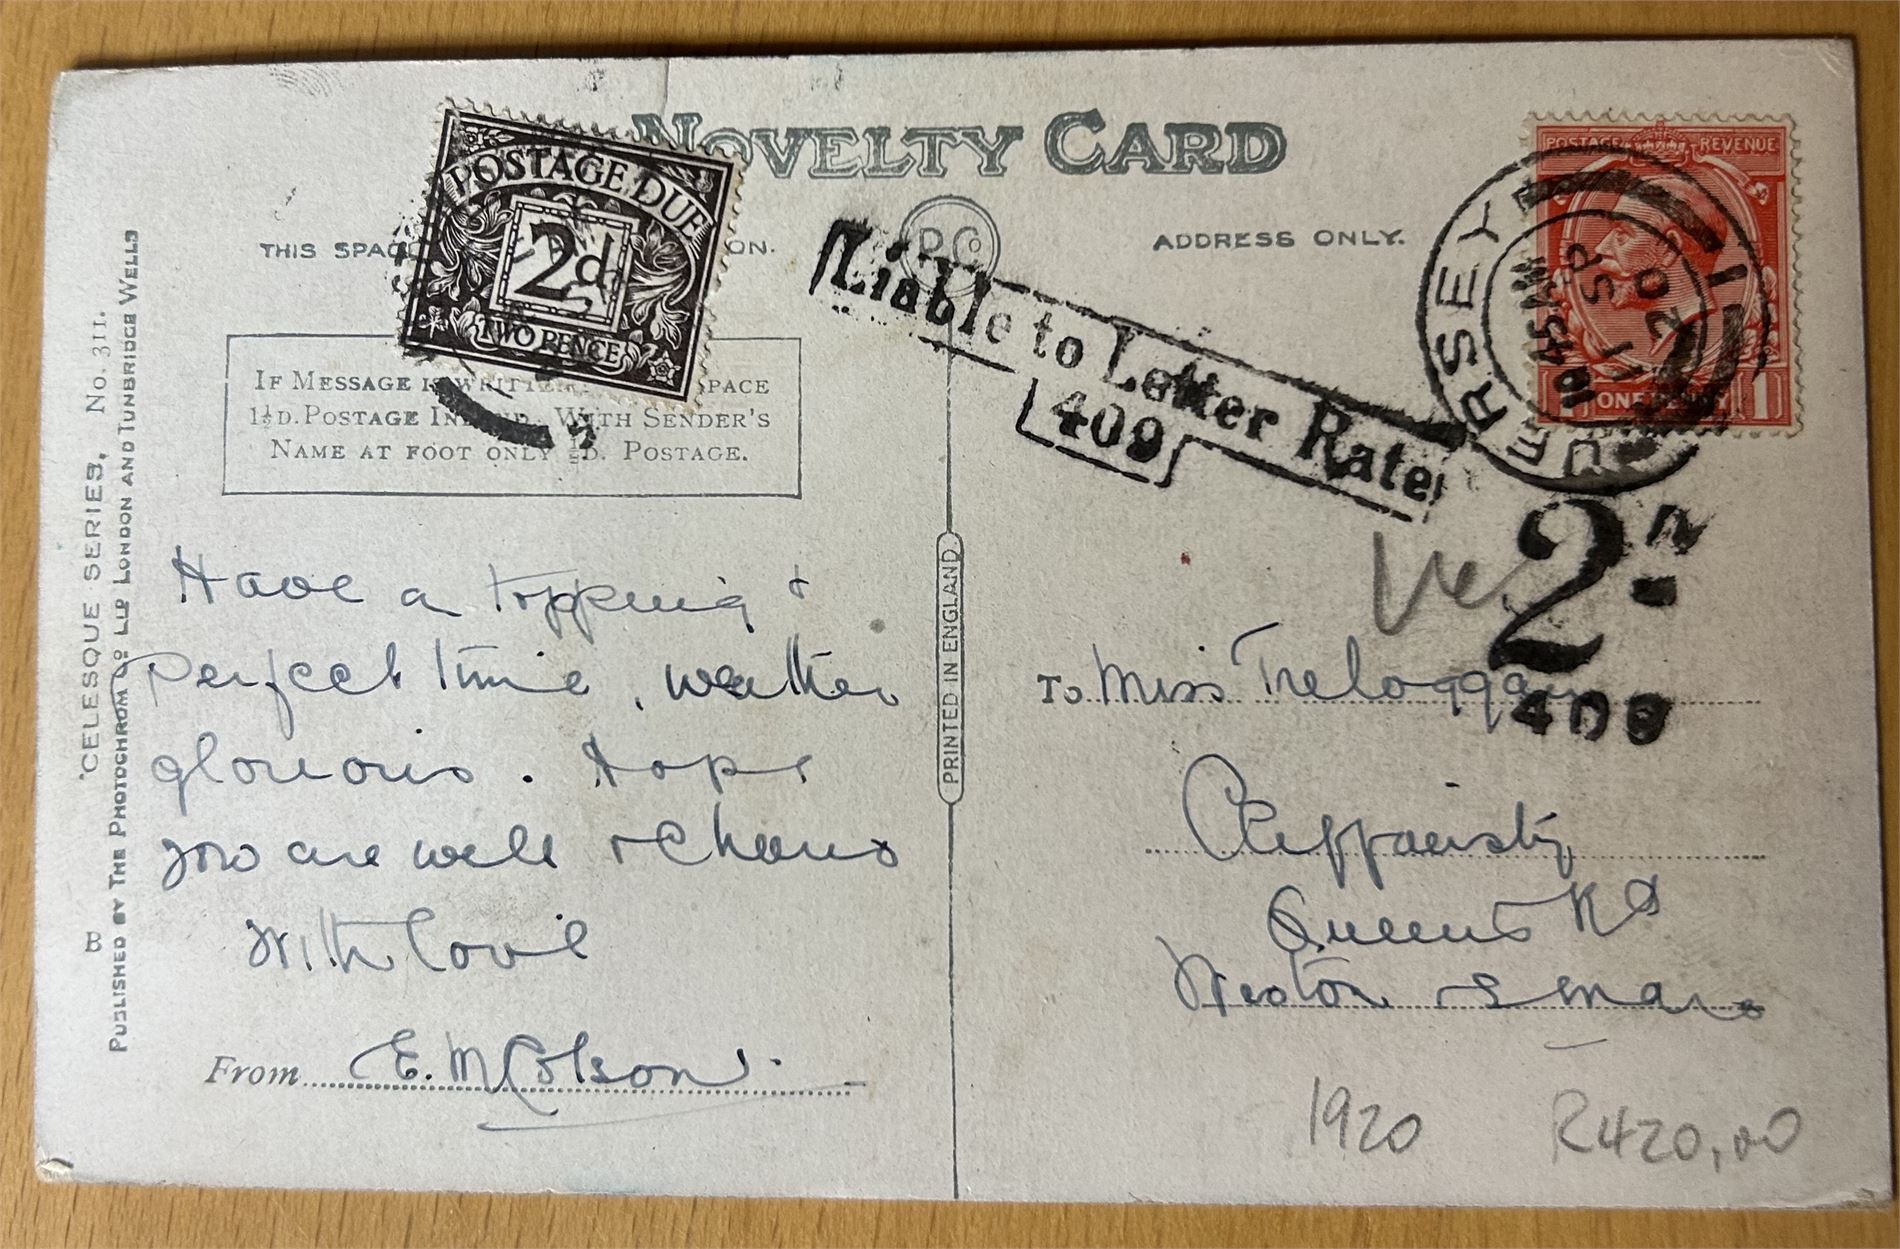 NOVELTY CARD
POSTAGE DUE
2d
TWO PENCE
THIS SPAC ON.
PC
ADDRESS ONLY.
POSTAGE REVENUE
ONE PENNY
JERSEY
1045 AM
11 SP
20
1
Liable to Letter Rate
409
IF MESSAGE IS WRITTEN SPACE
1½D. POSTAGE IN WITH SENDER'S
NAME AT FOOT ONLY ½D. POSTAGE.
'CELESQUE SERIES, No. 311.
B PUBLISHED BY THE PHOTOCHROM CO LTD LONDON AND TUNBRIDGE WELLS
PRINTED IN ENGLAND
2D
409
Have a topping &
perfect time, weather
glorious. Hope
you are well
With love
From E. M. Colson
To Miss Treloggan
Queens Rd
Weston S Mare
1920
R420,00